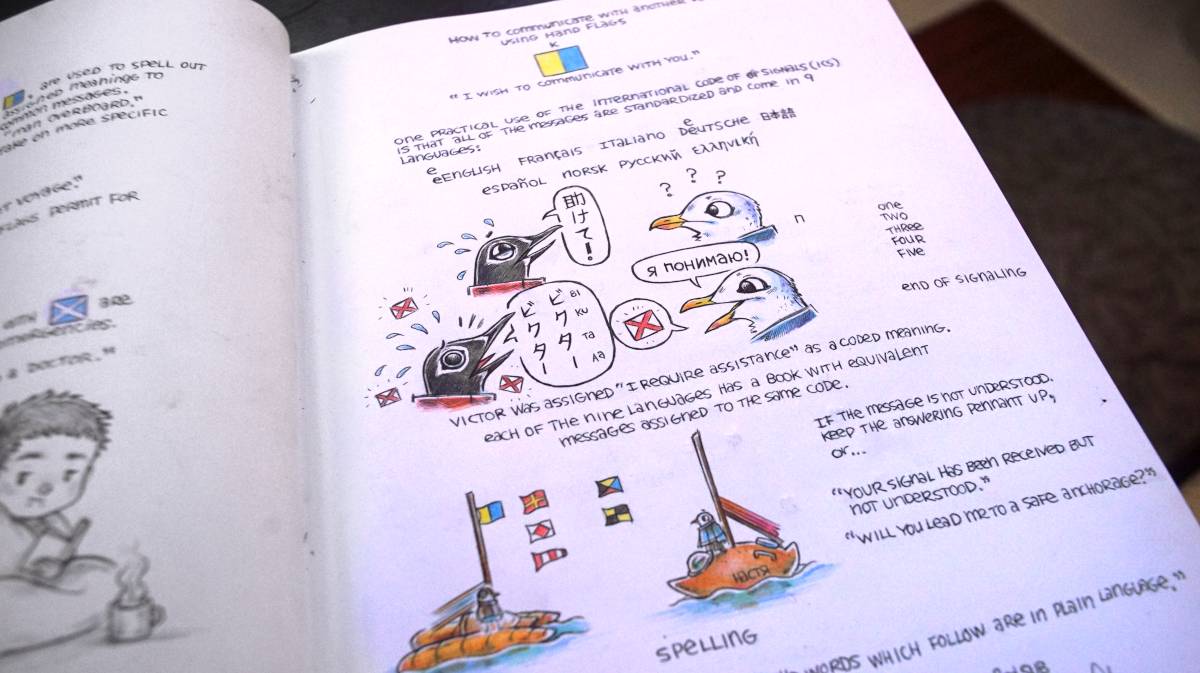 , are used to spell out
assigned meanings to
common messages.
"man overboard."
take on more specific
voyage."
permit for
with are
emergencies.
a doctor."
How to communicate with another
using hand flags
K
"I wish to communicate with you."
One practical use of the International Code of Signals (ICS)
is that all of the messages are standardized and come in 9
languages:
e
eEnglish Français Italiano Deutsche 日本語
e
español norsk русский ελληνική
? ? ?
助けて!
n
one
two
three
four
five
Я понимаю!
end of signaling
ビクター
ビクター
BI
KU
TA
AA
Victor was assigned "I require assistance" as a coded meaning.
each of the nine languages has a book with equivalent
messages assigned to the same code.
If the message is not understood,
keep the answering pennant up,
or...
"Your signal has been received but
not understood."
"Will you lead me to a safe anchorage?"
Настя
spelling
words which follow are in plain language."